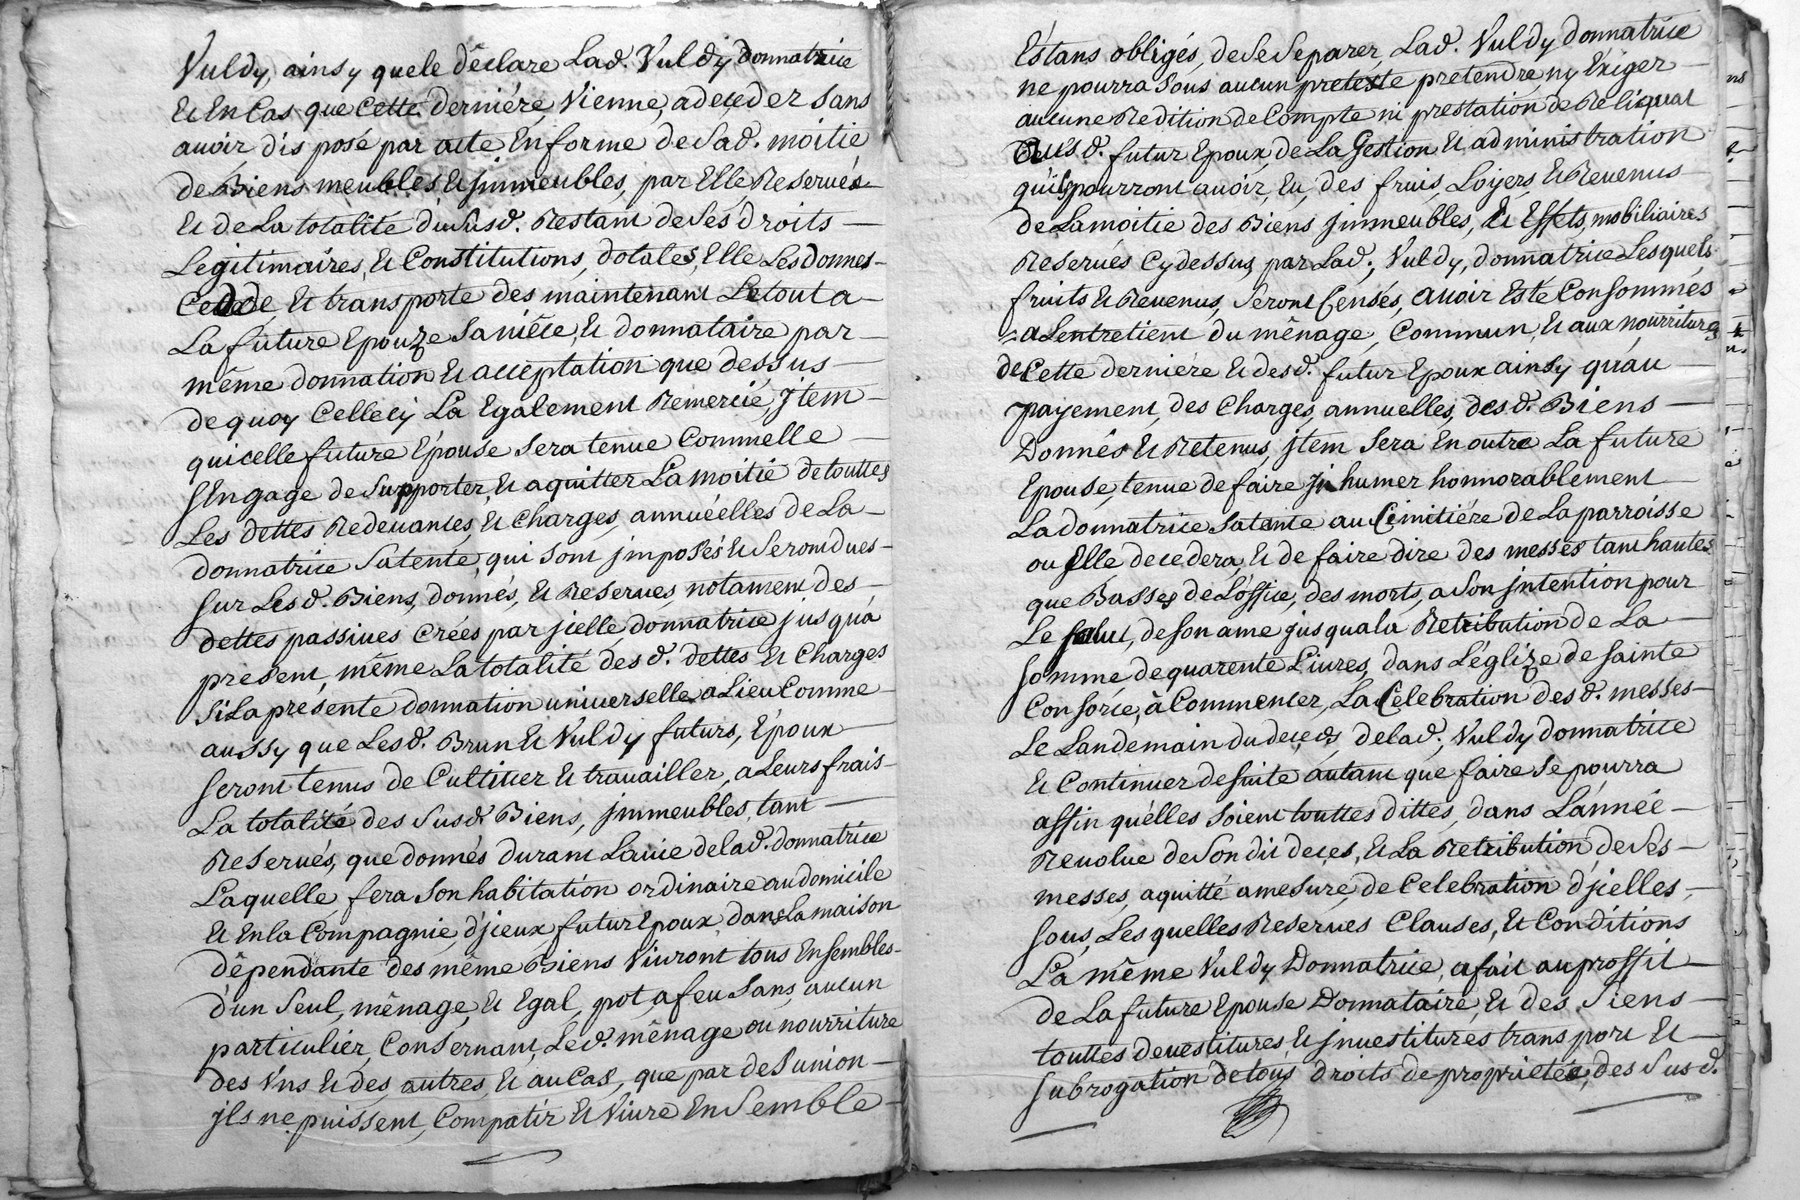 Vuldy, ainsy quele déclare Lad. Vuldy donnatrice
Et En Cas que Cette derniére, Vienne, a deceder sans
auoir disposé par acte En forme de Sad. moitié
de Biens meubles Et jmmeubles, par Elle Reservés
Et de La totalité du susd. Restant de Ses droits
Legitimaires, Et Constitutions, dotales, Elle Les donnes
Cedde, Et transporte des maintenant Le tout a
La future Epouze Sa niêce, Et donnataire par
même donnation Et acceptation que dessus
de quoy Cellecy L'a Egalement Remercié, jtem
quicelle future Epouse Sera tenue Commelle
S'Engage de Supporter, Et aquitter La moitié de touttes
Les dettes Redeuances, Et Charges, annuéelles de La
donnatrice Sa tente, qui Sont jmposés Et Seront dues
Sur Lesd. Biens, donnés, Et Reserves, notament des
dettes passiues Crées par jcelle donnatrice jusqu'a
present, même La totalité desd. dettes Et Charges
Si La présente donnation universelle a Lieu Comme
aussy que Lesd. Brun Et Vuldy futurs, Epoux
Seront tenus de Cultiuer Et trauailler, a Leurs frais
La totalité des Susd. Biens, jmmeubles, tant
Reserués, que donnés durant La uie de lad. donnatrice
Laquelle fera Son habitation ordinaire au domicile
Et En la Compagnie, d'jceux futur Epoux, dans La maison
dépendante des même Biens Viuront tous Ensembles
d'un Seul, ménage, Et Egal, pot, a feu Sans, aucun
particulier, Consernant, Led. ménage ou nourriture
des Vns Et des autres, Et au Cas, que par desunion
jls ne puissent, Compatir Et Viure Ensemble
Estans obligés, de Se Separer, Lad. Vuldy donnatrice
ne pourra Sous aucun pretexte pretendre, ny Exiger
aucune Redition de Compte ni prestation de Reliquat
Ausd. futur Epoux, de La Gestion Et administration
qu'ils pourront auoir, Eu, des fruis, Loyers, Et Reuenus
de La moitié des Biens jmmeubles, Et Effets, mobiliaires
Reserués Cy dessus, par Lad. Vuldy, donnatrice Lesquels
fruits Et Reuenus, Seront Censés, auoir Esté Consommés
a Lentretient du ménage, Commun, Et aux nourritures
de Cette derniére Et desd. futur Epoux ainsy qu'au
payement, des Charges, annuelles, desd. Biens
Donnés Et Retenus, jtem Sera En outre La future
Epouse, tenue de faire jnhumer honnorablement
La donnatrice Sa tente au Cimitiére de La parroisse
ou Elle decedera, Et de faire dire des messes tant hautes
que Basses de L'office, des morts, a Son jntention pour
Le Salut, de Son ame jusqua la Retribution de La
Somme de quarente Liures, dans L'églize de Sainte
Consorce, à Commencer, La Celebration desd. messes
Le Landemain du deces, de lad. Vuldy donnatrice
Et Continuer de Suite autant que faire Se pourra
affin quélles Soient touttes dittes, dans L'année
Reuolue de Son dit deces, Et La Retribution de Ses
messes, aquitté a mesure, de Celebration d'jcelles,
Sous, Les quelles Reserues Clauses, Et Conditions
La même Vuldy Donnatrice, a fait au proffit
de La future Epouse Donnataire, Et des Siens
touttes deuestitures, Et jnuestitures transport Et
Subrogation de tous droits de proprietés, des Susd.